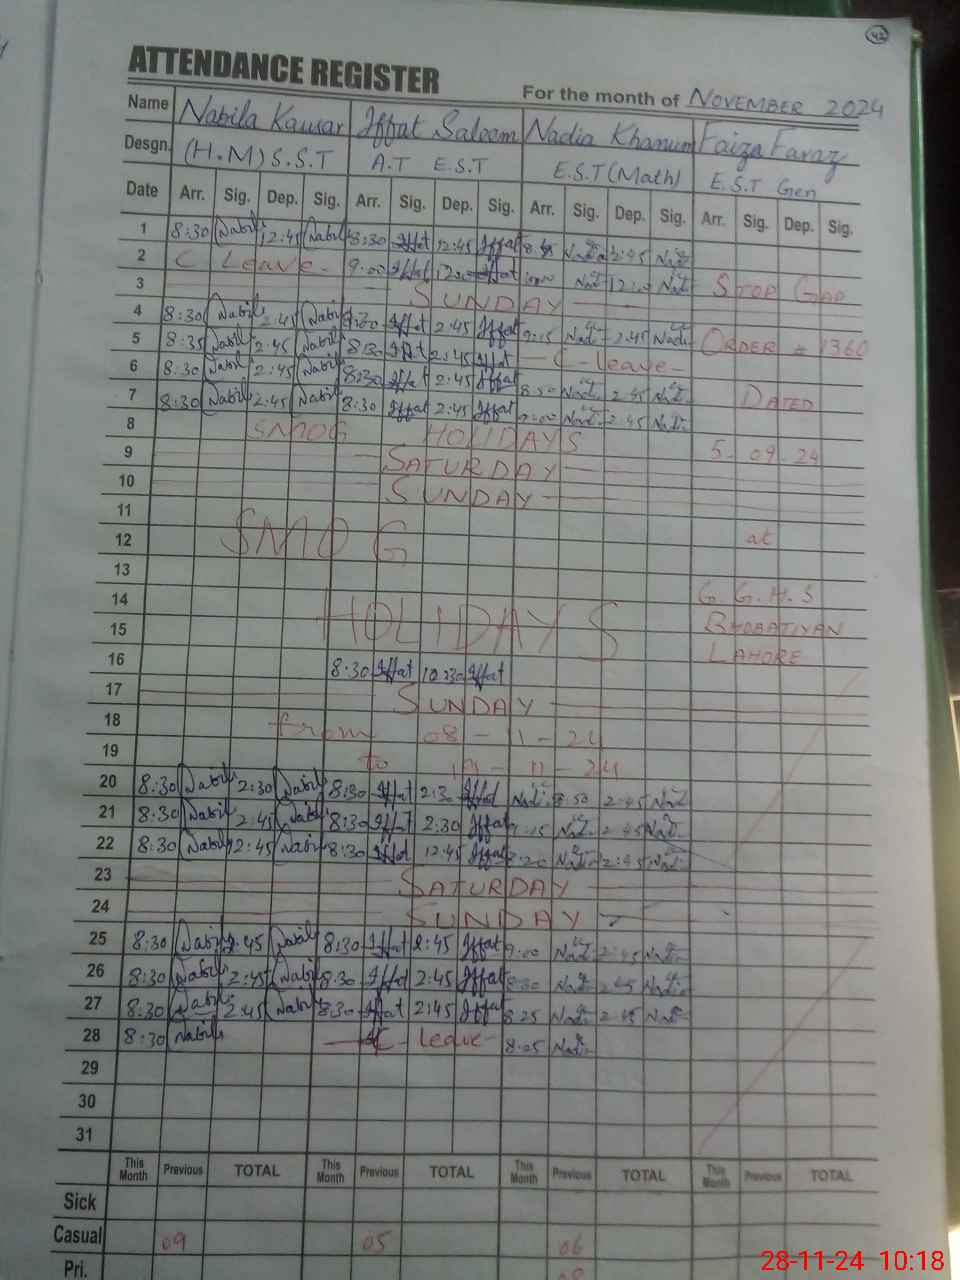 42
ATTENDANCE REGISTER
For the month of NOVEMBER 2024
Name Nabila Kausar Iffat Saleem Nadia Khanum Faiza Faraz
Desgn. (H.M) S.S.T A.T E.S.T E.S.T (Math) E.S.T Gen
Date Arr. Sig. Dep. Sig. Arr. Sig. Dep. Sig. Arr. Sig. Dep. Sig. Arr. Sig. Dep. Sig.
1 8:30 Nabila 12:45 Nabila 8:30 Iffat 12:45 Iffat Nadia 2:45 Nadia
2 C Leave - 9:00 Iffat 12:00 Iffat Nadi 12:00 Nadi
3 SUNDAY STOP GAP
4 8:30 Nabila 2:45 Nabila 8:30 Iffat 2:45 Iffat 9:15 Nadi 2:45 Nadi
5 8:35 Nabila 2:45 Nabila 8:30 Iffat 2:45 Iffat - C - leave - ORDER # 1360
6 8:30 Nabila 2:45 Nabila 8:30 Iffat 2:45 Iffat 8:50 Nadi 2:45 Nadi
7 8:30 Nabila 2:45 Nabila 8:30 Iffat 2:45 Iffat 9:00 Nadi 2:45 Nadi DATED
8 SMOG HOLIDAYS
9 SATURDAY 5-09-24
10 SUNDAY
11
12 SMOG at
13
14 G.G.H.S
15 HOLIDAYS BHOBATIYAN
16 8:30 Iffat 10:30 Iffat LAHORE
17 SUNDAY
18 from 08-11-24
19 to 19-11-24
20 8:30 Nabila 2:30 Nabila 8:30 Iffat 2:30 Iffat Nadi 8:50 2:45 Nadi
21 8:30 Nabila 2:45 Nabila 8:30 Iffat 2:30 Iffat 9:15 Nadi 2:45 Nadi
22 8:30 Nabila 12:45 Nabila 8:30 Iffat 12:45 Iffat 8:20 Nadi 2:45 Nadi
23 SATURDAY
24 SUNDAY
25 8:30 Nabila 2:45 Nabila 8:30 Iffat 2:45 Iffat 9:00 Nadi 2:45 Nadi
26 8:30 Nabila 2:45 Nabila 8:30 Iffat 2:45 Iffat 8:30 Nadi 2:45 Nadi
27 8:30 Nabila 2:45 Nabila 8:30 Iffat 2:45 Iffat 8:25 Nadi 2:45 Nadi
28 8:30 Nabila C - Leave - 8:05 Nadi
29
30
31
This Month Previous TOTAL This Month Previous TOTAL This Month Previous TOTAL This Month Previous TOTAL
Sick
Casual 09 05 06
Pri.
28-11-24 10:18